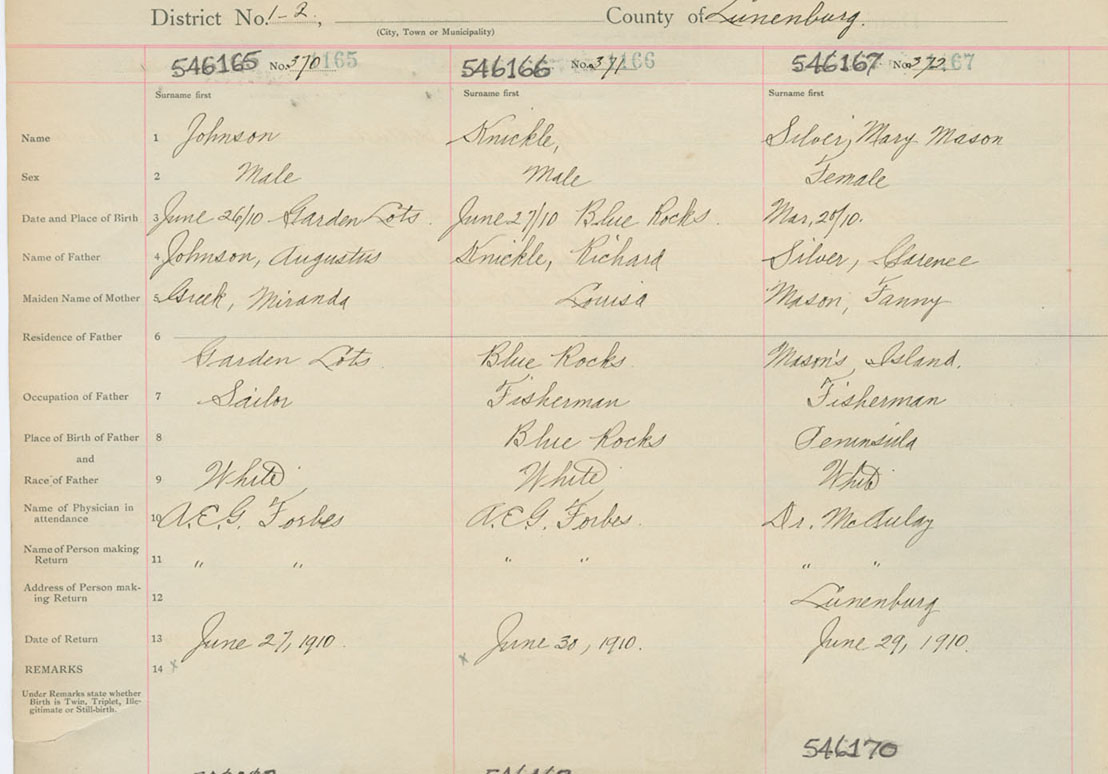 District No. 1-2, County of Lunenburg.
(City, Town or Municipality)
546165 No. 370 165 546166 No. 371 166 546167 No. 372 67
Surname first Surname first Surname first
Name 1 Johnson Knickle, Silver, Mary Mason
Sex 2 Male Male Female
Date and Place of Birth 3 June 26/10 Garden Lots. June 27/10 Blue Rocks. Mar, 20/10.
Name of Father 4 Johnson, Augustus Knickle, Richard Silver, Clarence
Maiden Name of Mother 5 Greek, Miranda Louisa Mason, Fanny
Residence of Father 6
Garden Lots. Blue Rocks. Mason's Island.
Occupation of Father 7 Sailor Fisherman Fisherman
Place of Birth of Father 8 Blue Rocks Peninsula
and
Race of Father 9 White White White
Name of Physician in
attendance 10 A.E.G. Forbes A.E.G. Forbes. Dr. McAulay
Name of Person making
Return 11 " " " " " "
Address of Person mak-
ing Return 12 Lunenburg
Date of Return 13 June 27, 1910. June 30, 1910. June 29, 1910.
REMARKS 14 x x
Under Remarks state whether
Birth is Twin, Triplet, Ille-
gitimate or Still-birth.
546170